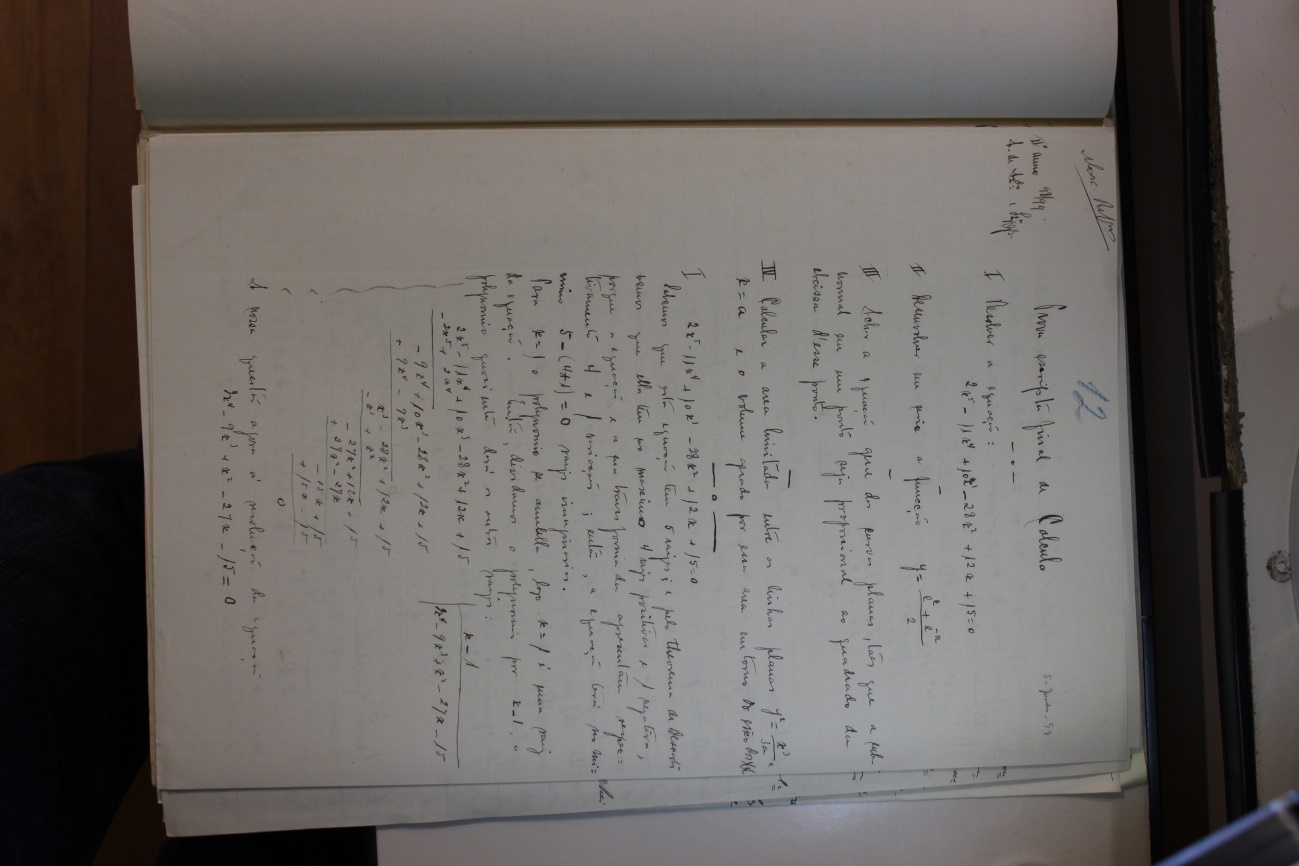 12
IIº anno 98/99
Prova escripta final de Calculo
I Resolver a equação:
2x⁵ - 11x⁴ + 10x³ - 28x² + 12x + 15 = 0
II Desenvolver em serie a funcção y = (eˣ + e⁻ˣ)/2
III Achar a equação que da curvas planas, taes que a sub-
normal em um ponto seja proporcional ao quadrado da
abcissa d'esse ponto.
IV Calcular a area limitada entre as linhas planas y² = x³/3a e
x = a e o volume gerado por essa area em torno do eixo dos
I
2x⁵ - 11x⁴ + 10x³ - 28x² + 12x + 15 = 0
Sabemos que esta equação tem 5 raizes e pelo theorema de
vemos que ella tem no maximo 4 raizes positivas e 1 negativa,
porque a equação e a sua transformada apresentam respec-
tivamente 4 e 1 variações; então, a equação terá no mi-
nimo 5 - (4+1) = 0 raizes imaginarias.
Para x = 1 o polynomio se annulla, logo x = 1 é uma raiz
da equação. Então, dividamos o polynomio por x-1, o
polynomio quociente dará as outras raizes:
2x⁵ - 11x⁴ + 10x³ - 28x² + 12x + 15 | x - 1
- 2x⁵ + 2x⁴ | 2x⁴ - 9x³ + x² - 27x - 15
- 9x⁴ + 10x³ - 28x² + 12x + 15
+ 9x⁴ - 9x³
x³ - 28x² + 12x + 15
- x³ + x²
- 27x² + 12x + 15
+ 27x² - 27x
- 15x + 15
+ 15x - 15
0
A nossa questão agora é resolução da equação
2x⁴ - 9x³ + x² - 27x - 15 = 0